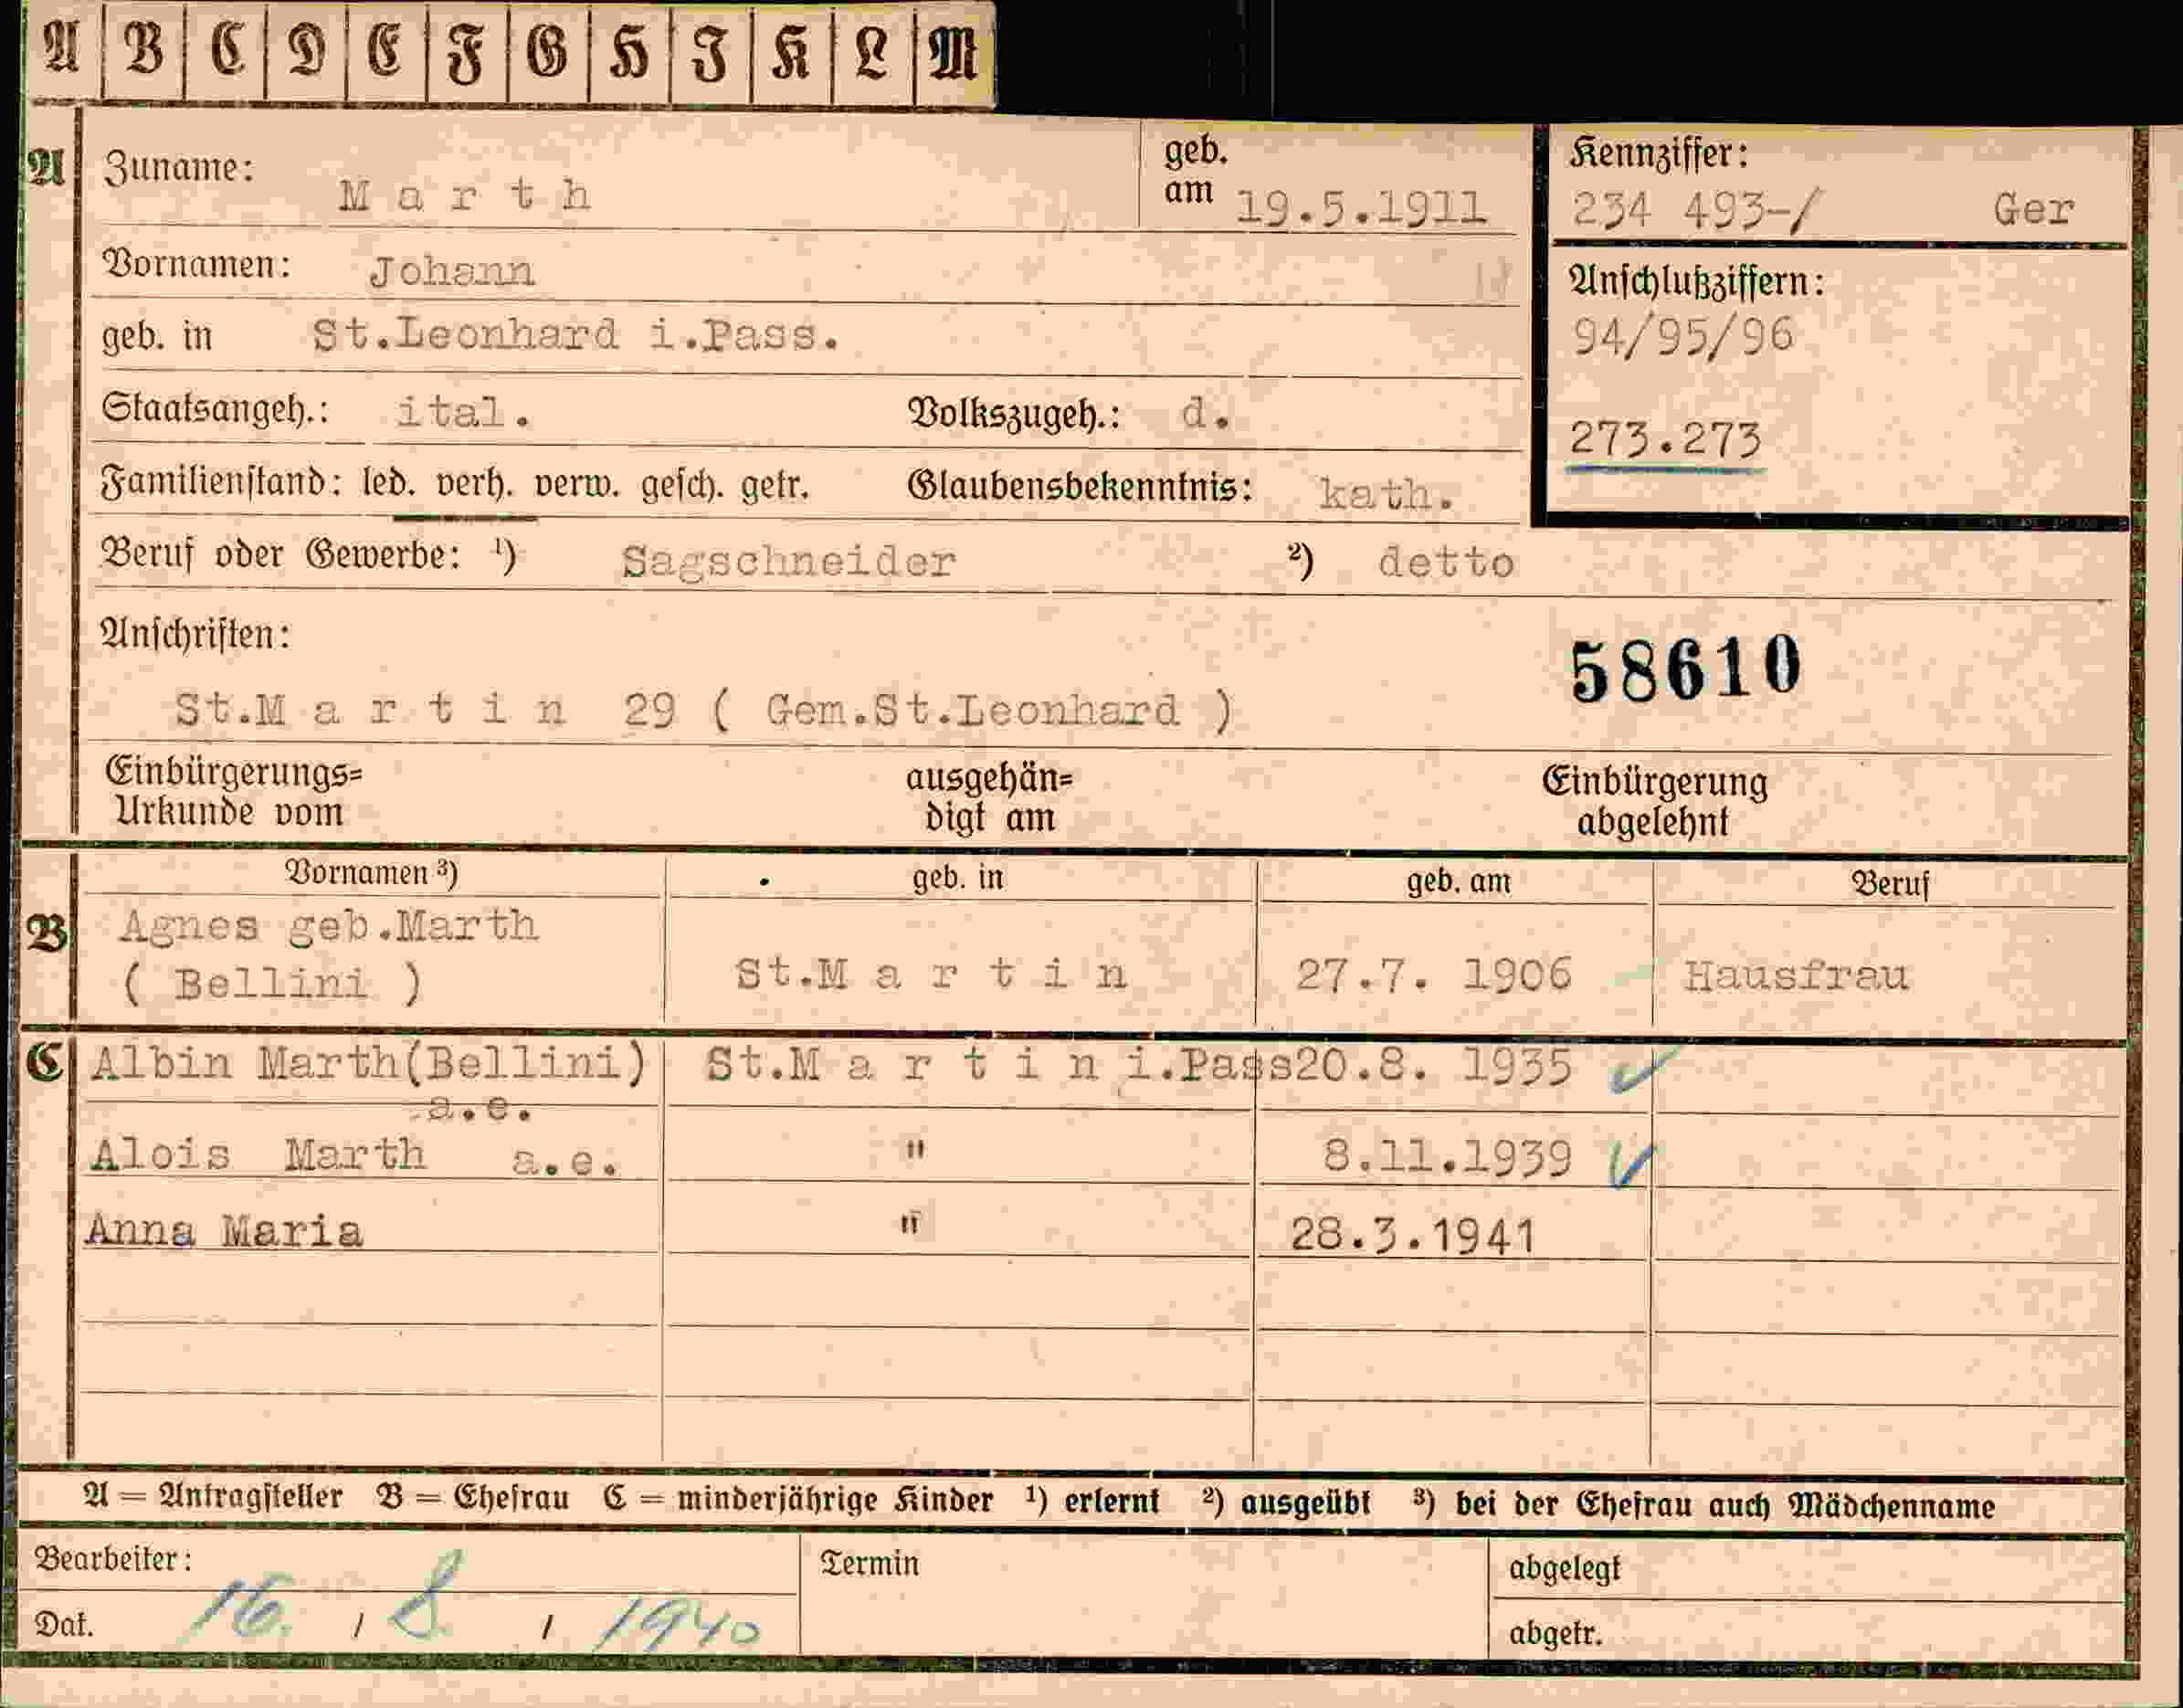 A B C D E F G H J K L M
A Zuname: Marth geb. am 19.5.1911
Kennziffer:
234 493-/ Ger
Vornamen: Johann
Anschlußziffern:
94/95/96
geb. in St.Leonhard i.Pass.
Staatsangeh.: ital. Volkszugeh.: d.
273.273
Familienstand: led. verh. verw. gesch. getr. Glaubensbekenntnis: kath.
Beruf oder Gewerbe: ¹) Sagschneider ²) detto
Anschriften:
58610
St.Martin 29 ( Gem.St.Leonhard )
Einbürgerungs= ausgehän= Einbürgerung
Urkunde vom digt am abgelehnt
Vornamen ³) geb. in geb. am Beruf
B Agnes geb.Marth
( Bellini ) St.Martin 27.7. 1906 Hausfrau
C Albin Marth(Bellini) St.Martin i.Pass 20.8. 1935
a.e.
Alois Marth a.e. " 8.11.1939
Anna Maria " 28.3.1941
A = Antragsteller B = Ehefrau C = minderjährige Kinder ¹) erlernt ²) ausgeübt ³) bei der Ehefrau auch Mädchenname
Bearbeiter: Termin abgelegt
Dat. 16. / 8 / 1940 abgetr.